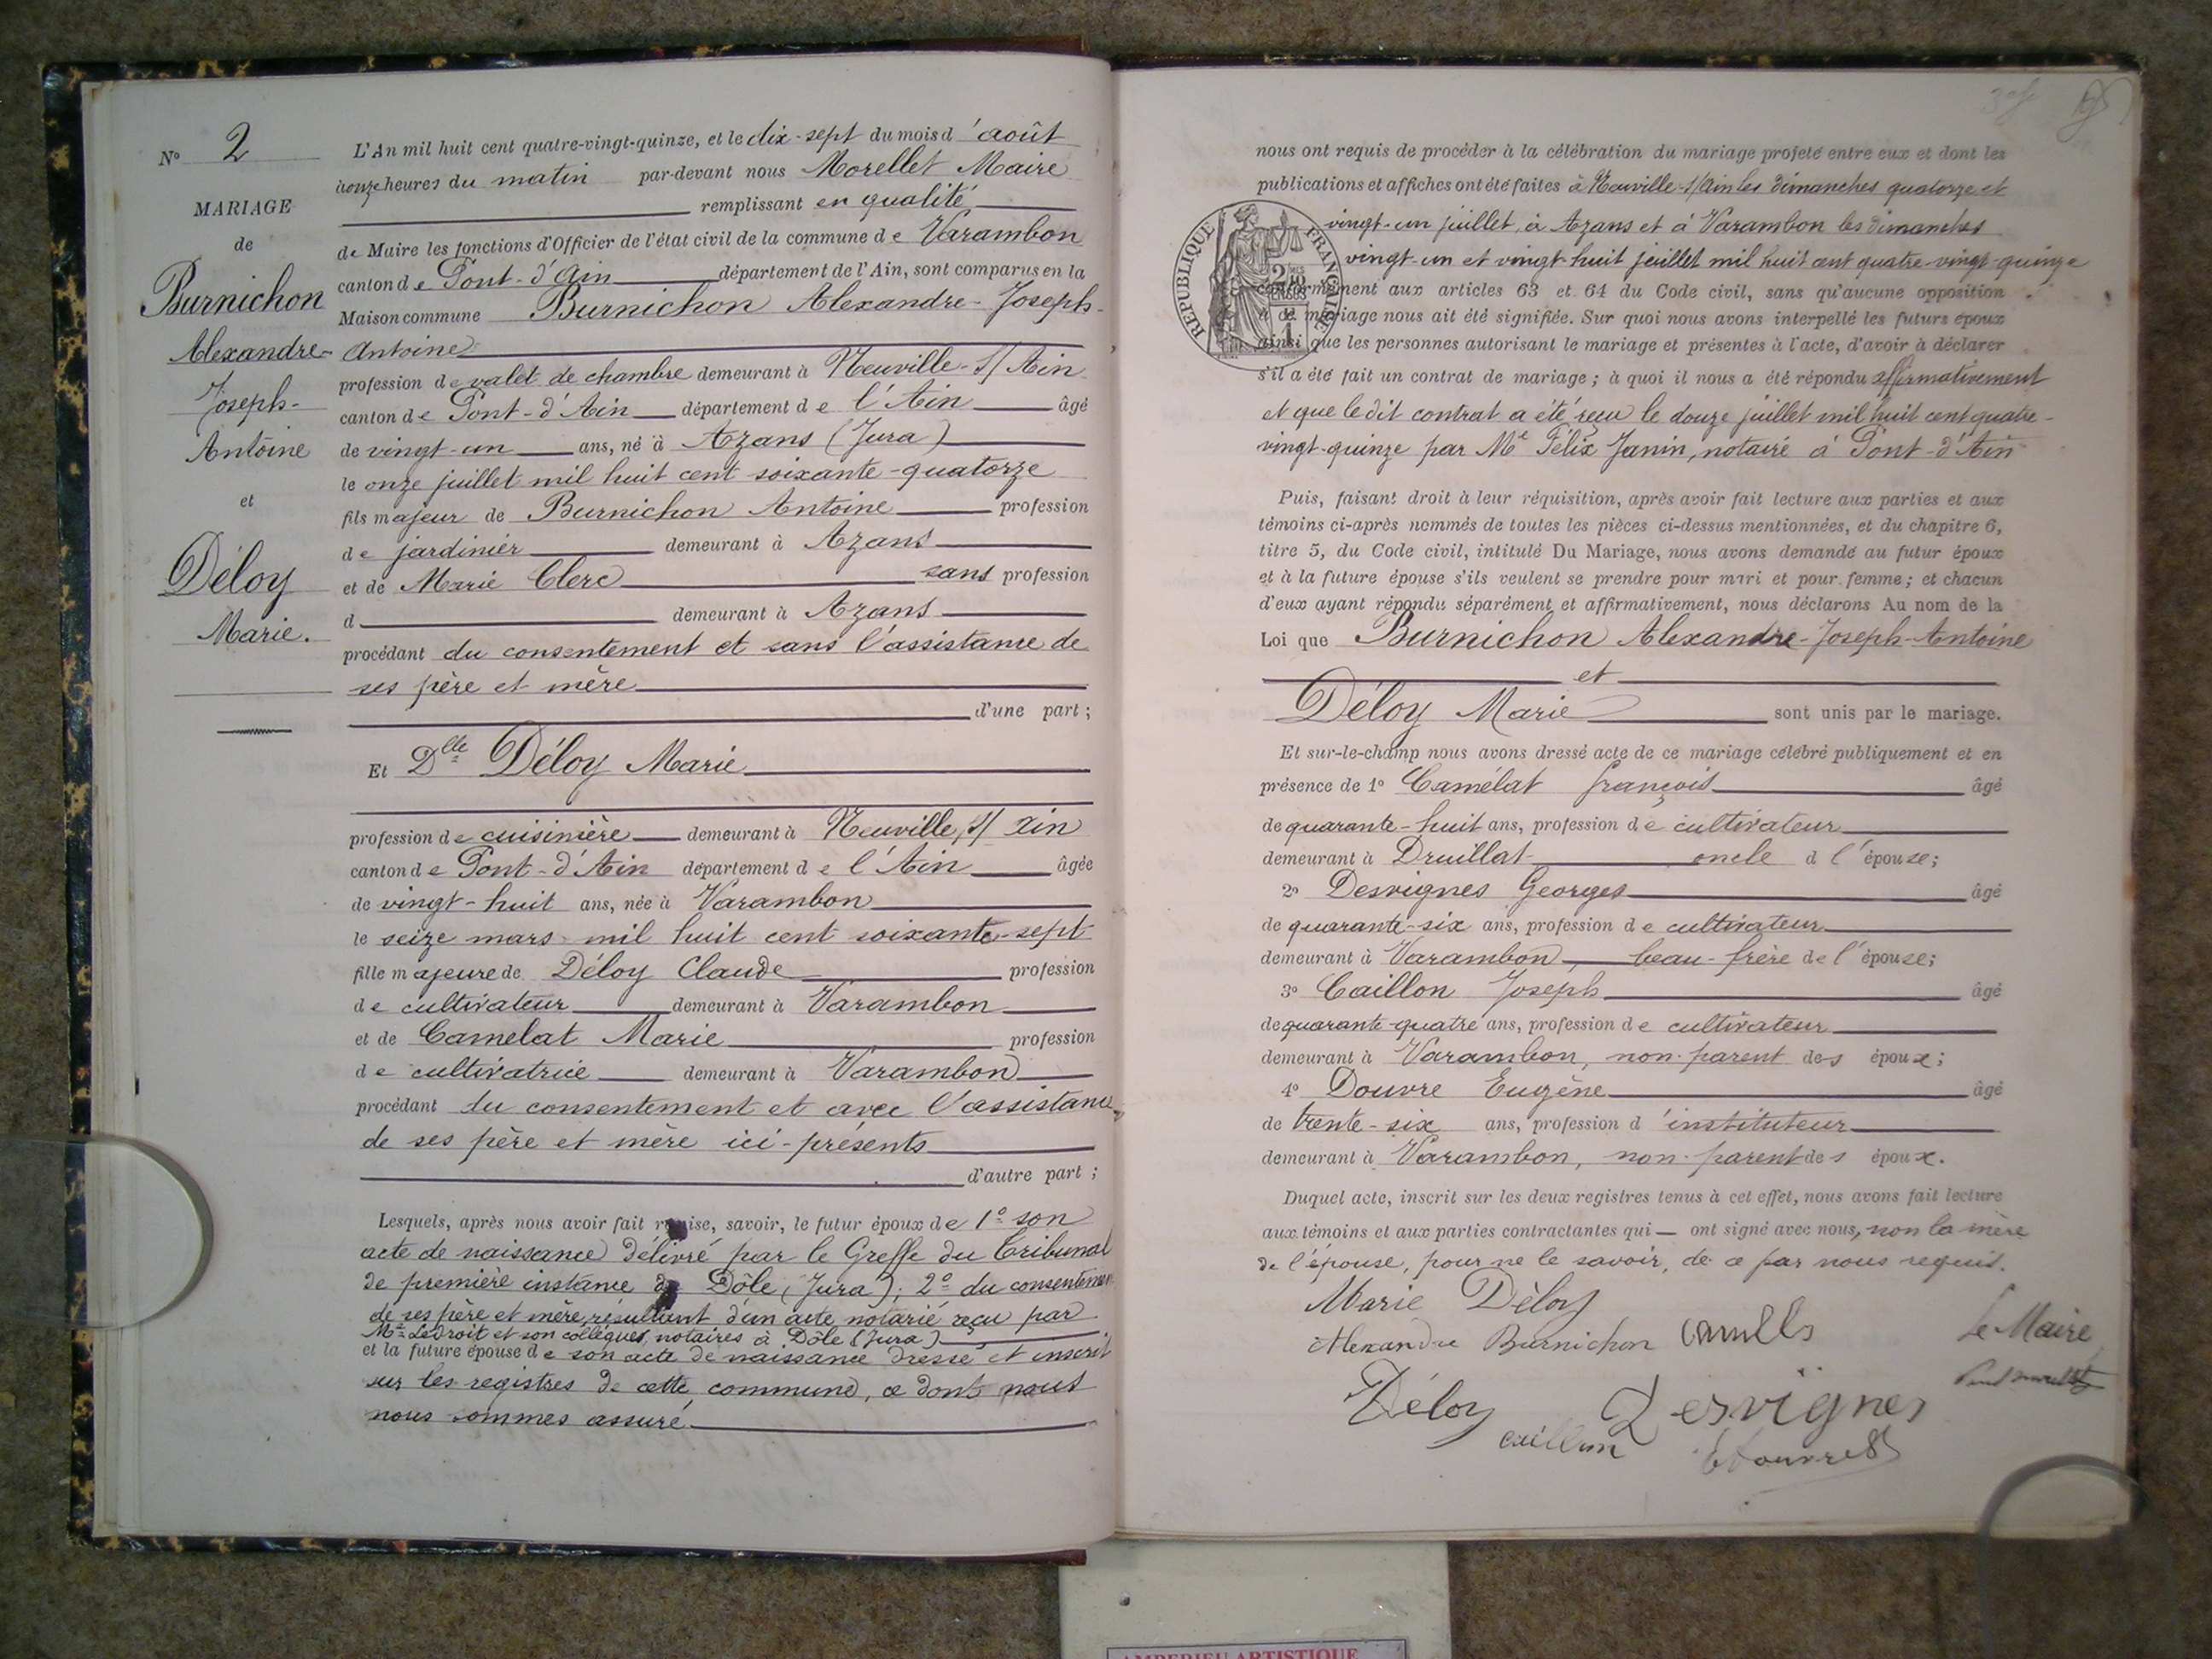 N° 2
MARIAGE
de
Burnichon
Alexandre-
Joseph-
Antoine
et
Déloy
Marie.
L'An mil huit cent quatre-vingt-quinze, et le dix-sept du mois d'août
à onze heures du matin par-devant nous Morellet Maire
remplissant en qualité
de Maire les fonctions d'Officier de l'état civil de la commune de Varambon
canton de Pont-d'Ain département de l'Ain, sont comparus en la
Maison commune Burnichon Alexandre-Joseph-
Antoine
profession de valet de chambre demeurant à Neuville-s/Ain
canton de Pont-d'Ain département de l'Ain âgé
de vingt-un ans, né à Azans (Jura)
le onze juillet mil huit cent soixante-quatorze
fils majeur de Burnichon Antoine profession
de jardinier demeurant à Azans
et de Marie Clerc sans profession
d demeurant à Azans
procédant du consentement et sans l'assistance de
ses père et mère
d'une part ;
Et Dlle Déloy Marie
profession de cuisinière demeurant à Neuville, s/ Ain
canton de Pont-d'Ain département de l'Ain âgée
de vingt-huit ans, née à Varambon
le seize mars mil huit cent soixante-sept
fille majeure de Déloy Claude profession
de cultivateur demeurant à Varambon
et de Camelat Marie profession
de cultivatrice demeurant à Varambon
procédant du consentement et avec l'assistance
de ses père et mère ici-présents
d'autre part ;
Lesquels, après nous avoir fait remise, savoir, le futur époux de 1° son
acte de naissance délivré par le Greffe du Tribunal
de première instance de Dôle (Jura); 2° du consentement
de ses père et mère, résultant d'un acte notarié reçu par
Me LeDroit et son collègues, notaires à Dôle (Jura)
et la future épouse de son acte de naissance dressé et inscrit
sur les registres de cette commune, ce dont nous
nous sommes assuré
nous ont requis de procéder à la célébration du mariage projeté entre eux et dont les
publications et affiches ont été faites à Neuville-s/Ain les dimanches quatorze et
vingt-un juillet, à Azans et à Varambon les dimanches
vingt-un et vingt-huit juillet mil huit cent quatre-vingt-quinze
conformément aux articles 63 et 64 du Code civil, sans qu'aucune opposition
à ce mariage nous ait été signifiée. Sur quoi nous avons interpellé les futurs époux
ainsi que les personnes autorisant le mariage et présentes à l'acte, d'avoir à déclarer
s'il a été fait un contrat de mariage ; à quoi il nous a été répondu affirmativement
et que le dit contrat a été reçu le douze juillet mil huit cent quatre-
vingt-quinze par Me Félix Janin, notaire à Pont-d'Ain
RÉPUBLIQUE FRANÇAISE
Puis, faisant droit à leur réquisition, après avoir fait lecture aux parties et aux
témoins ci-après nommés de toutes les pièces ci-dessus mentionnées, et du chapitre 6,
titre 5, du Code civil, intitulé Du Mariage, nous avons demandé au futur époux
et à la future épouse s'ils veulent se prendre pour mari et pour femme ; et chacun
d'eux ayant répondu séparément et affirmativement, nous déclarons Au nom de la
Loi que Burnichon Alexandre-Joseph-Antoine
et
Déloy Marie sont unis par le mariage.
Et sur-le-champ nous avons dressé acte de ce mariage célébré publiquement et en
présence de 1° Camélat françois âgé
de quarante-huit ans, profession de cultivateur
demeurant à Druillat oncle d l'épouse ;
2° Desvignes Georges âgé
de quarante-six ans, profession de cultivateur
demeurant à Varambon, beau-frère de l'épouse ;
3° Caillon Joseph âgé
de quarante-quatre ans, profession de cultivateur
demeurant à Varambon, non-parent des époux ;
4° Douvre Eugène âgé
de trente-six ans, profession d'instituteur
demeurant à Varambon, non-parent des époux.
Duquel acte, inscrit sur les deux registres tenus à cet effet, nous avons fait lecture
aux témoins et aux parties contractantes qui — ont signé avec nous, non la mère
de l'épouse, pour ne le savoir, de ce par nous requis.
Marie Déloy
Alexandre Burnichon
Le Maire
Déloy Desvignes
caillon
AMBERIEU ARTISTIQUE